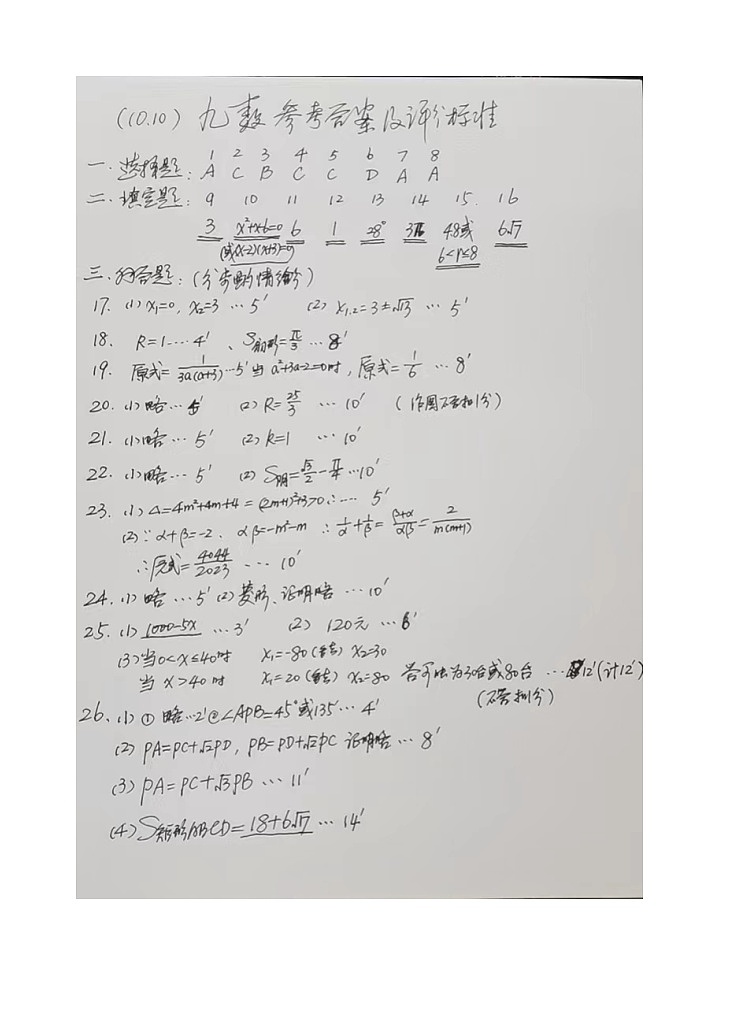 (10.10) 九数参考答案及评分标准
1 2 3 4 5 6 7 8
一. 选择题: A C B C C D A A
二. 填空题: 9 10 11 12 13 14 15. 16
3 x²+x-6=0 6 1 28° 4.8或 6√7
(或(x-2)(x+3)=0) 6<r≤8
三. 解答题: (分步酌情给分)
17. (1) x₁=0, x₂=3 … 5′ (2) x₁.₂=3±√13 … 5′
18. R=1 … 4′ 、S扇形=π/3 … 8′
19. 原式=1/3a(a+3) … 5′ 当 a²+3a-2=0时, 原式=1/6 … 8′
20. (1) 略 … 5′ (2) R=25/3 … 10′ (作图不全扣1分)
21. (1) 略 … 5′ (2) k=1 … 10′
22. (1) 略 … 5′ (2) S阴=√3/2-π/4 … 10′
23. (1) Δ=4m²+4m+4=(2m+1)²+3>0 ∴ … 5′
(2) ∵ α+β=-2、αβ=-m²-m ∴ 1/α+1/β=β+α/αβ=2/m(m+1)
∴ 原式=4044/2023 … 10′
24. (1) 略 … 5′ (2) 菱形、证明略 … 10′
25. (1) 1000-5x … 3′ (2) 120元 … 6′
(3) 当0<x≤40时 x₁=-80(舍去) x₂=30
当 x>40时 x₁=20(舍去) x₂=80 为30台或80台 … 12′(计12′)
(不答扣1分)
26. (1) ① 略 … 2′ ② ∠APB=45°或135° … 4′
(2) PA=PC+√2PD, PB=PD+√2PC 证明略 … 8′
(3) PA=PC+√3PB … 11′
(4) S矩形ABCD=18+6√7 … 14′